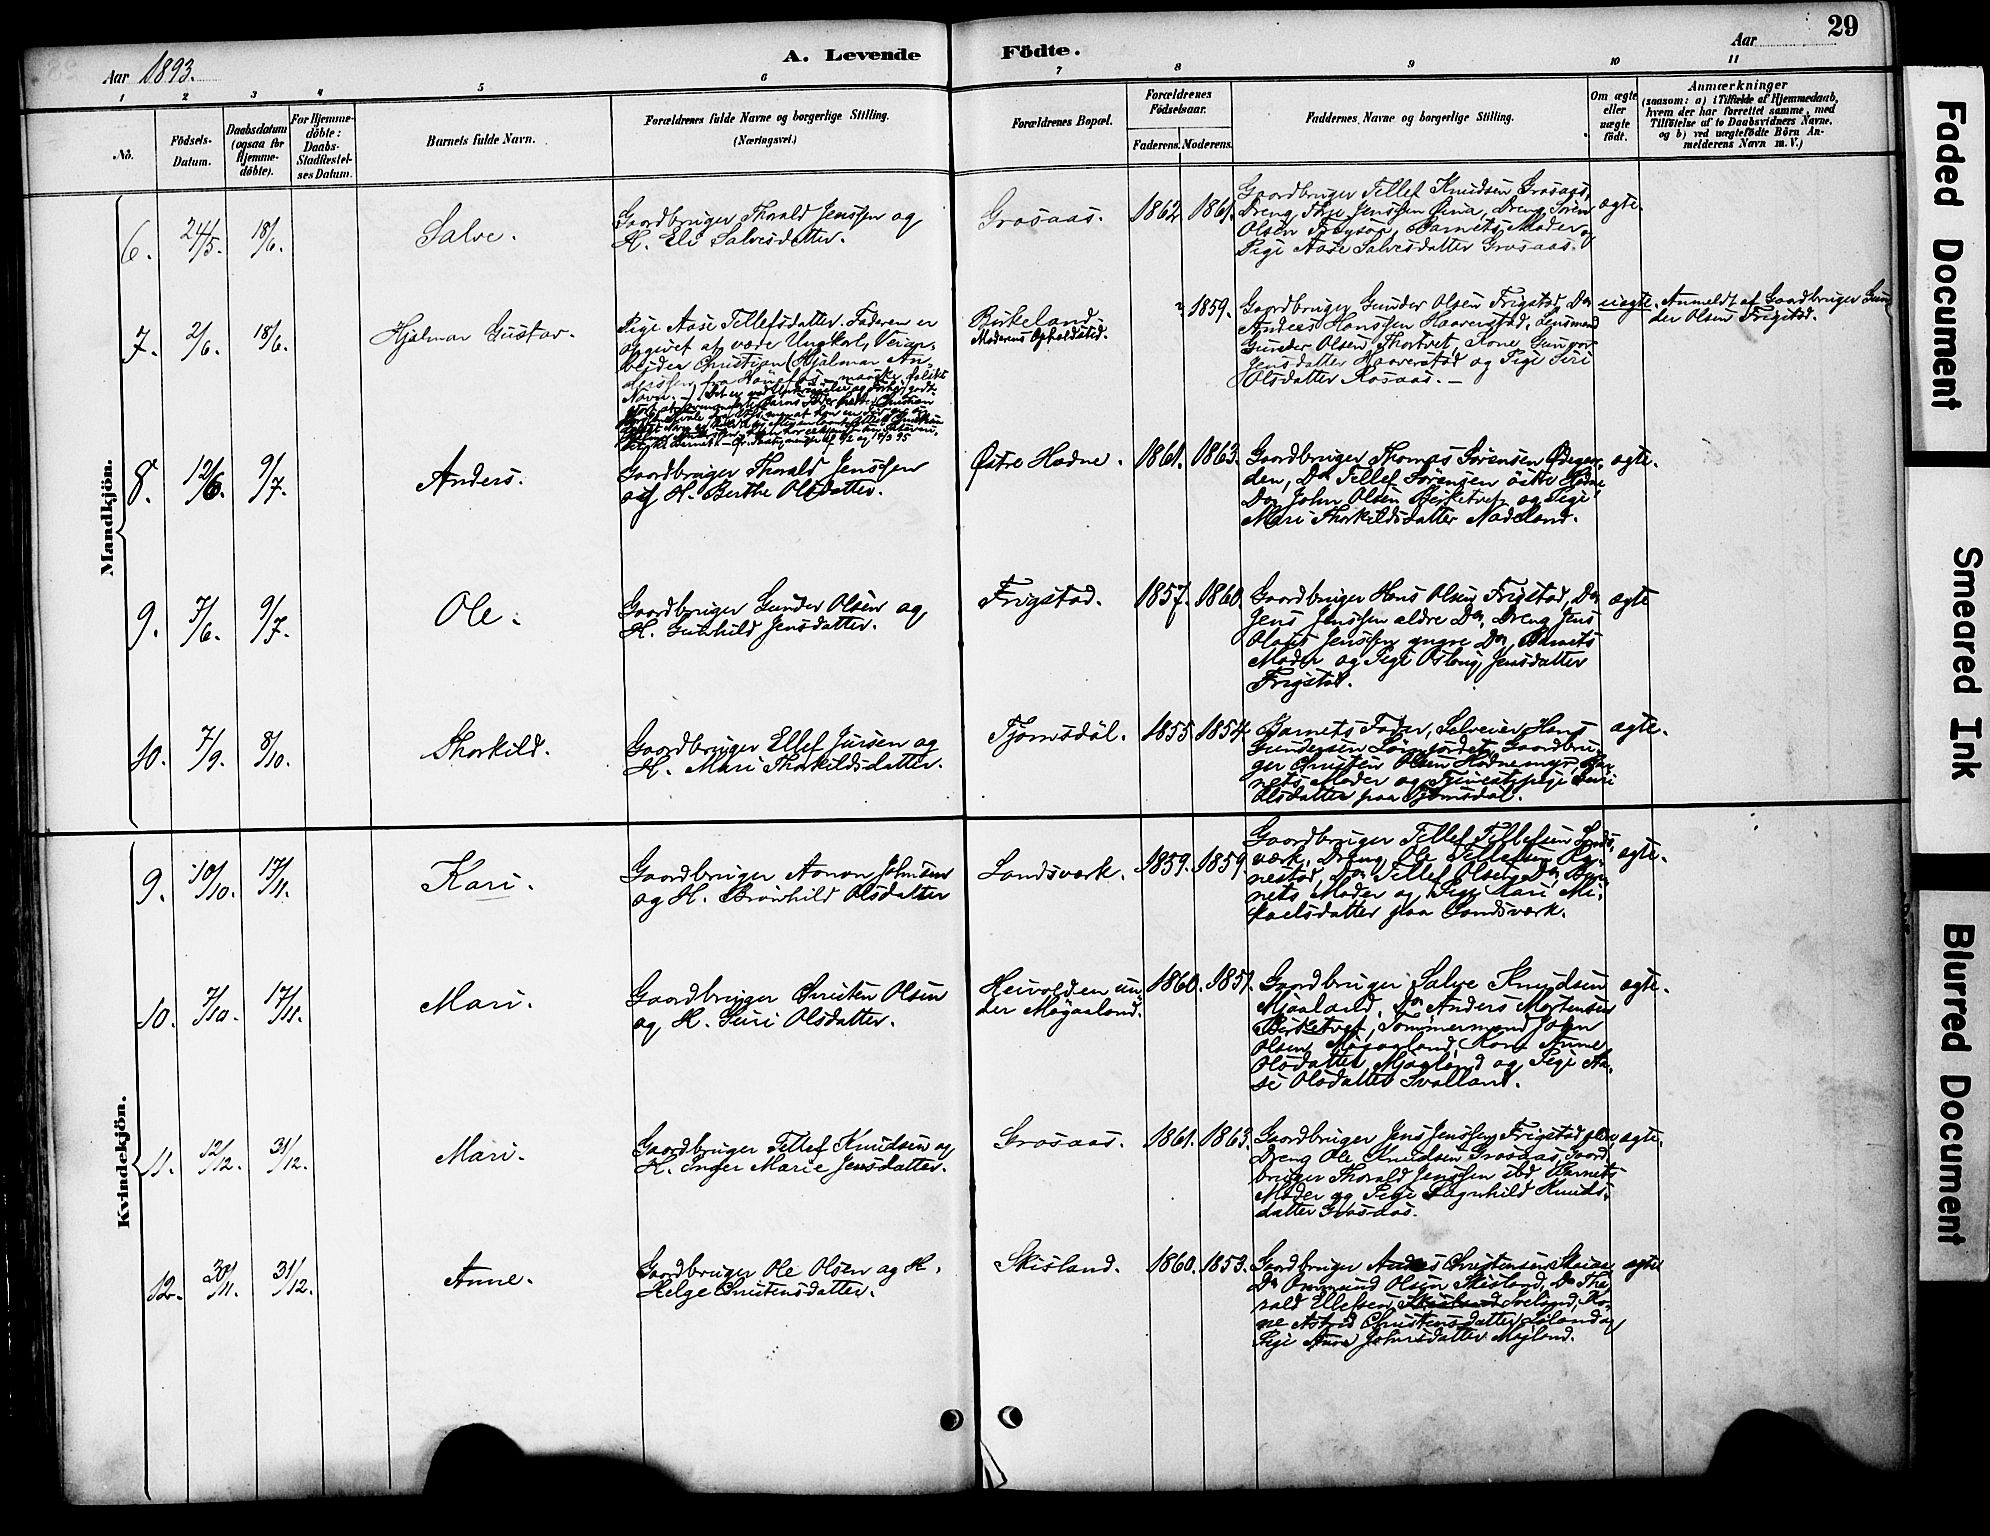 29
Aar 1893.
A. Levende Födte.
Aar
1 2 3 4 5 6 7 8 9 10 11
No.
Födsels-
Datum.
Daabsdatum
(ogsaa for
Hjemme-
döbte).
For Hjemme-
döbte:
Daabs-
Stadfæstel-
ses Datum.
Barnets fulde Navn.
Forældrenes fulde Navne og borgerlige Stilling.
(Næringsvei.)
Forældrenes Bopæl.
Forældrenes
Födselsaar.
Faderens. Moderens.
Faddernes Navne og borgerlige Stilling.
Om ægte
eller
uægte
födt.
Anmærkninger
(saasom: a) i Tilfælde af Hjemmedaab,
hvem der har forrettet samme, med
Tilföielse af to Daabsvidners Navne,
og b) ved uægtefödte Börn An-
melderens Navn m. V.)
Mandkjön.
6. 24/5. 18/6. Salve.
Gaardbruger Thorald Jenssen og
H. Eli Salvesdatter.
Grosaas. 1862. 1861.
Gaardbruger Tellef Knudsen Grosaas,
Dreng Jenssen Dreng Sören
Olsen Barnets Moder og
Pige Aase Salvesdatter Grosaas.
ægte.
7. 2/6. 18/6. Hjalmar Gustav.
Pige Aase Tellefsdatter. Faderen er
opgivet at være Ungkarl,
beider Christian (Hjalmar An-
derssen, fra Hönefos, maaske falskt
Navn.)
Birkeland.
Moderens Opholdssted.
? 1859.
Gaardbruger Gunder Olsen Frigstad, Do
Anders Hanssen Haaverstad, Lensmand
Gunder Olsen Thortvet, Kone Gunvor
Jensdatter Haaverstad og Pige Siri
Olsdatter Rosaas. —
uægte.
Anmeldt af Gaardbruger Gun-
der Olsen Frigstad.
8. 12/6. 9/7. Anders.
Gaardbruger Thorald Jenssen
og H. Berthe Olsdatter.
Østre Hodne. 1861. 1863.
Gaardbruger Thomas Sörensen Ødegar-
den, Do Tellef Sörensen östre Hodne,
Do John Olsen Birketvet og Pige
Mari Thorkildsdatter Nadeland.
ægte.
9. 7/6. 9/7. Ole.
Gaardbruger Gunder Olsen og
H. Gunhild Jensdatter.
Frigstad. 1857. 1860.
Gaardbruger Hans Olsen Frigstad, Do
Jens Jenssen ældre Do, Dreng Jens
Olaus Jenssen yngre Do, Barnets
Moder og Pige Oslaug Jensdatter
Frigstad.
ægte
10. 7/9. 8/10. Thorkild.
Gaardbruger Ellef Jursen og
H. Mari Thorkildsdatter.
Tjomsdal. 1855. 1854.
Barnets Fader, Selveier Hans
Gundersen Gaardbru-
ger Christen Olsen Hodnemyr, Bar-
nets Moder og Tjenestepige Siri
Olsdatter paa Tjomsdal.
ægte.
Kvindekjön.
9. 10/10. 17/11. Kari.
Gaardbruger Aanon Johnsen
og H. Brönhild Olsdatter
Landsværk. 1859. 1859.
Gaardbruger Tellef Tellefsen Lands-
værk, Dreng Ole Tellefsen
nestad, Do Tellef Olsen Do, Bar-
nets Moder og Pige Mari Mi-
kaelsdatter paa Landsværk.
ægte.
10. 7/10. 17/11. Mari.
Gaardbruger Christen Olsen
og H. Siri Olsdatter.
Heivolden un-
der Mögaaland.
1860. 1851.
Gaardbruger Salve Knudsen
Mjaaland, Do Anders Mortensen
Birketvet, Tömmermand John
Olsen Mögaaland, Kone Anne
Olsdatter Mjaaland og Pige Aa-
se Olsdatter Svalland.
ægte.
11. 12/12. 31/12. Mari.
Gaardbruger Tellef Knudsen og
H. Inger Marie Jensdatter.
Grosaas. 1861. 1863.
Gaardbruger Jens Jenssen Frigstad ældre,
Dreng Ole Knudsen Grosaas, Gaard-
bruger Thorald Jenssen ibd, Barnets
Moder og Pige Ragnhild Knuds-
datter Grosaas.
ægte.
12. 30/11. 31/12. Anne.
Gaardbruger Ole Olsen og H.
Helge Christensdatter.
Skisland. 1860. 1853.
Gaardbruger Anders Christensen Skaiaa,
Do Omund Olsen Skisland, Do Tha-
rald Ellefsen Sveland, Ko-
ne Astrid Christensdatter og
Pige Anne Johnsdatter Mejland.
ægte
Faded Document
Smeared Ink
Blurred Document